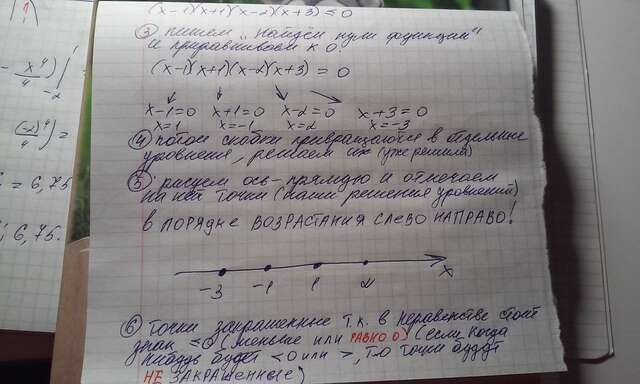 (x-1)(x+1)(x-2)(x+3) ≤ 0
③ пишем „найдём нули функции"
и приравниваем к 0!
(x-1)(x+1)(x-2)(x+3) = 0
x-1=0 x+1=0 x-2=0 x+3=0
x=1 x=-1 x=2 x=-3
④ потом скобки превращаются в отдельные
уравнения, решаем их (уже решила)
⑤ рисуем ось-прямую и отмечаем
на ней точки (наши решения уравнений)
В ПОРЯДКЕ ВОЗРАСТАНИЯ СЛЕВО НАПРАВО!
-3 -1 1 2 x
⑥ Точки закрашенные т.к. в неравенстве стоит
знак ≤0 (меньше или РАВНО 0) (если когда
нибудь будет < 0 или >, то точки будут
НЕ ЗАКРАШЕННЫЕ)
x⁴
4 -2
(-2)⁴
4 =
= 6,75
6,75.